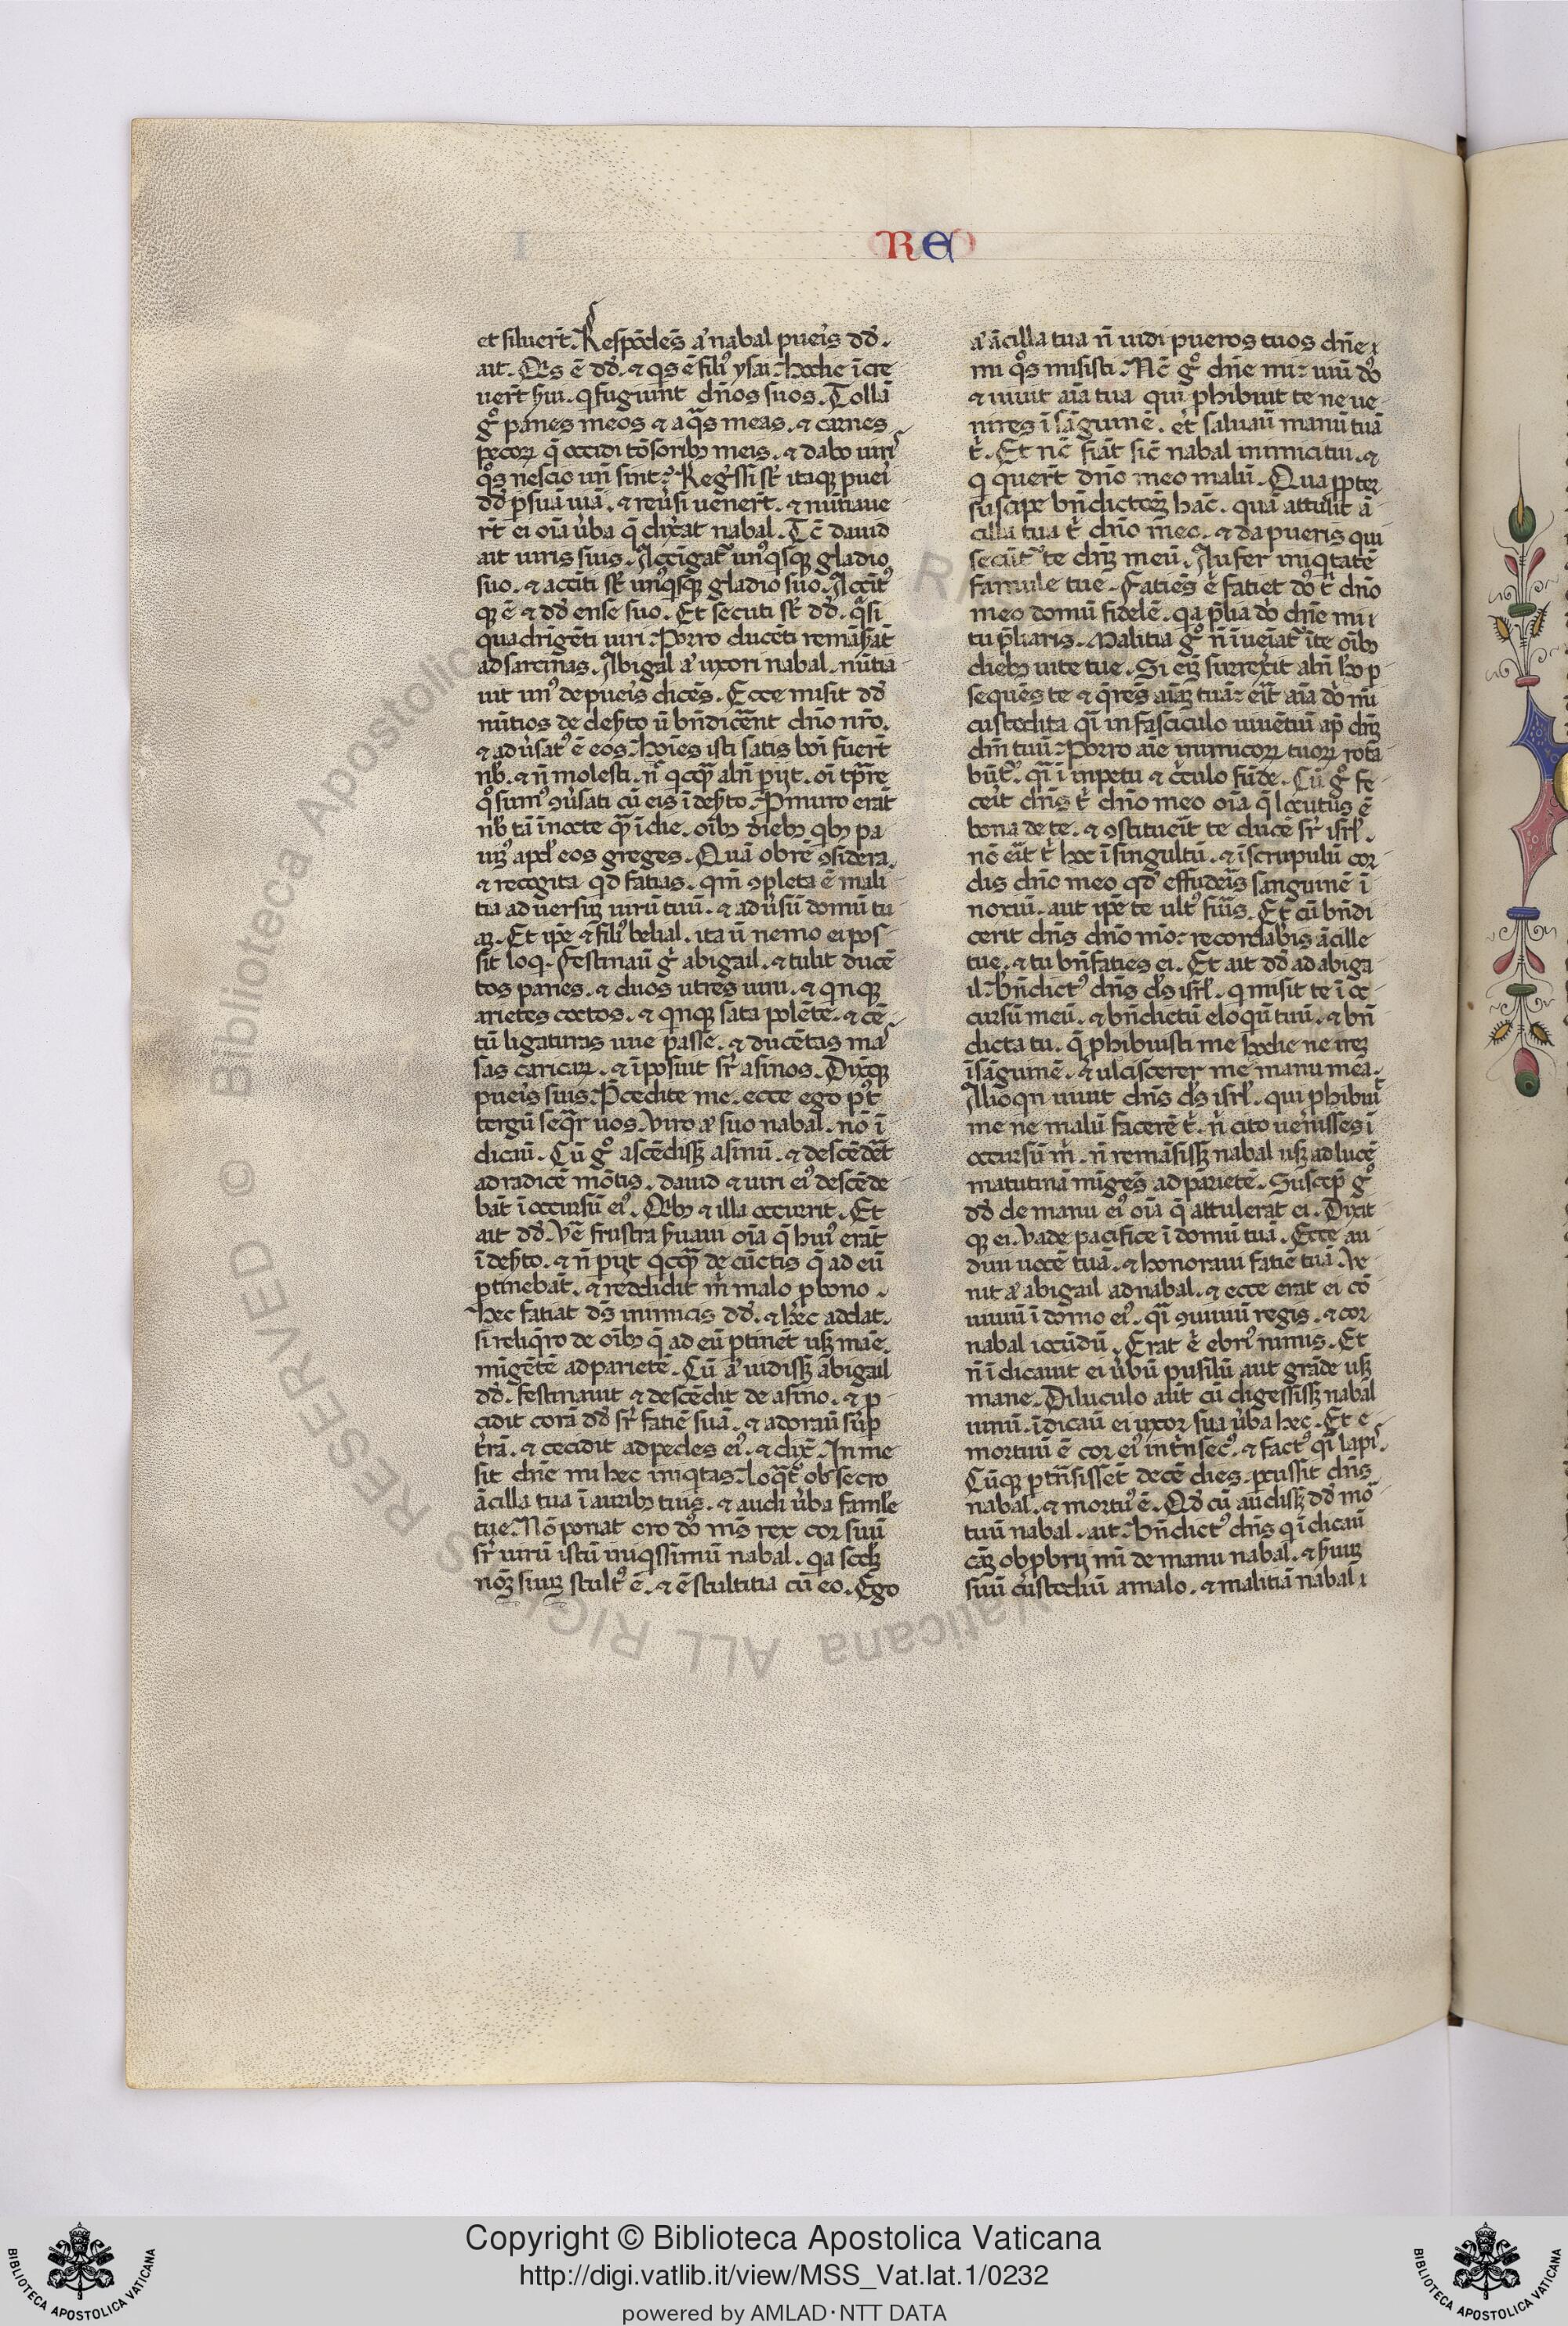 RE
et siluert̄. Respōdēs aͥ nabal pueīs dd̄.
ait. Qͥs ē dd̄. ⁊ qͥs ē filiꝰ ysai. hodie īcre
uert̄ ẜui. q̇ fugiunt dn̄os suos. Tollā
gͦ panes meos ⁊ aq̄s meas. ⁊ carnes
pecoꝝ q̄ occidi tōsoribꝫ meis. ⁊ dabo uiri
qͦs nescio un̄ sint? Regͥssi st̄ itaqꝫ pueī
dd̄ ꝑ suā uiā. ⁊ reūsi uēnert̄. ⁊ nūtiaue
rt̄ ei oīa ūba q̄ dix̄at nabal. Tc̄ dauid
ait uiris suis. Accīgatr̄ unꝰqͥsqꝫ gladio
suo. ⁊ accīti st̄ unꝰqͥsqꝫ gladio suo. Accītꝰ
qꝫ ē ⁊ dd̄ ense suo. Et secuti st̄ dd̄. qͣsi
quadrigēti uiri. Porro ducēti remāẜat̄
ad sarcinas. Abigal aͥ uxori nabal. nūtia
uit unꝰ de pueīs dicēs. Ecce misit dd̄
nūtios de deẜto ū bn̄dicēnt dn̄o nr̄o.
⁊ adūsatꝰ ē eos. hoīes isti satis boī fuert̄
nb̄. ⁊ n̄ molesti. nͨ qͥcqͣꝫ aln̄ pijt. oī tp̄re
qͦ fuimꝰ ꝯūsati cū eis ī deẜto. ꝓ muro erāt
nb̄ tā ī nocte qͣꝫ ī die. oībꝫ diebꝫ qͥbꝫ pa
uimꝰ apd̄ eos greges. Quā obrē ꝯsidera.
⁊ recogita qͥd fatias. qm̄ ꝯpleta ē mali
tia aduersuꝫ uirū tuū. ⁊ adūsū domū tu
aꝫ. Et ip̄e ē filiꝰ belial. ita ū nemo ei pos
sit loqͥ. Festinauͥ gͥ abigail. ⁊ tulit ducē
tos panes. ⁊ duos utres uini. ⁊ qͥnqꝫ
arietes coctos. ⁊ qͥnqꝫ sata polēte. ⁊ cē
tū ligaturas uue passe. ⁊ ducētas ma
sas caricaꝝ. ⁊ īposuit sr̄ asinos. Dix̄qꝫ
pueīs suis. P̄cedite me. ecce ego pꝰt
tergū seqͣr uos. Viro aͥ suo nabal. nō ī
dicauͥ. Cū gͦ ascēdissꝫ asinū. ⁊ descēdēt
ad radicē mōtis. dauid ⁊ uiri eiꝰ descēde
bāt ī occursū eiꝰ. Qͥbꝫ ⁊ illa occurrit. Et
ait dd̄. Ve᷑ frustra ẜuaui oīa q̄ huiꝰ erāt
ī deẜto. ⁊ n̄ pijt qͥcqͣꝫ de cūctis q̄ ad eū
ꝑtinebāt. ⁊ reddidit m̄ malo ꝓ bono.
hec fatiat ds̄ inimicis dd̄. ⁊ h̄ec addat.
si reliqͥro de oībꝫ q̄ ad eū ꝑtinēt usꝫ mane.
mīgētē ad parietē. Cū aͥ uidissꝫ ābigail
dd̄. festinauit ⁊ descēdit de asino. ⁊ ꝓ
cidit corā dd̄ sr̄ fatiē suā. ⁊ adorauͥ sūꝑ
tr̄ā. ⁊ cecidit ad pedes eiꝰ. ⁊ dix̄. In me
sit dn̄e mi hec iniqͥtas. loqͣtr̄ obsecro
ācilla tua ī auribꝫ tuis. ⁊ audi ūba faml̄e
tue. Nō ponat oro dō ms̄ rex cor suū
sr̄ uirū istū iniqͥssimū nabal. qa scdꝫ
nōꝫ suuꝫ stultꝰ ē. ⁊ ē stultitia cū eo. Ego
aͥ ācilla tua n̄ uidi pueros tuos dn̄e
mi qͦs misisti. Nc̄ gͦ dn̄e mi: uiuͥ dō
⁊ uiuit aīa tua qui ꝓhibuit te ne ue
nires ī sāguinē. et̄ saluauͥ manū tuā
t̄. Et nc̄ fiāt sic̄ nabal inimici tui. ⁊
qͥ quert̄ dn̄o meo malū. Qua ꝓpter
suscipe bn̄dictōeꝫ hāc. quā attulit ā
cilla tua t̄ dn̄o meo. ⁊ da pueris qui
secūtr̄ te dn̄ꝫ meū. Aufer iniqͥtatē
famule tue. Fatiēs ē fatiet dō t̄ dn̄o
meo domū fidelē. qa p̄lia dō dn̄e mi
tu p̄liaris. Malitia gͦ n̄ īueiatr̄ ī te oībꝫ
diebꝫ uite tue. Si eiꝫ surrexit aln̄ hō ꝑ
sequēs te ⁊ q̄rēs aīaꝫ tuā: eīt aīa dō mī
custodita qͣi in fasciculo uiuētiū ap̄ dn̄ꝫ
dm̄ tuū. Porro aīe inimicoꝝ tuoꝝ rota
būtr̄. qͣi ī inpetu ⁊ cͥculo fūde. Cū gͦ fe
ceīt dn̄s t̄ dn̄o meo oīa q̄ locutus ē
bona de te. ⁊ ꝯstitueīt te ducē sr̄ isrl̄.
nō eīt t̄ hoc ī singultū. ⁊ ī scrupulū cor
dis dn̄o meo qd̄ effudeīs sanguinē ī
noxiū. aut ip̄e te ultꝰ fuīs. Et cū bn̄di
cerit dn̄s dn̄o mōꝰ: recordabis ācille
tue. ⁊ tu bn̄faties ei. Et ait dd̄ ad abiga
il. Bn̄dictꝰ dn̄s ds̄ isrl̄. qͥ misit te ī oc
cursū meū. ⁊ bn̄dictū eloqͥū tuū. ⁊ bn̄
dicta tu. q̄ ꝓhibuisti me hodie ne ireꝫ
ī sāguinē. ⁊ ulciscerer me manu mea.
Alioqͥn uiuit dn̄s ds̄ isrl̄. qui ꝓhibuit
me ne malū facerē t̄. n̄ cito uenisses ī
occursū m̄. n̄ remāsissꝫ nabal usꝫ ad lucē
matutinā mīgēs ad parietē. Suscep̄ gͦ
dd̄ de manu eiꝰ oīa q̄ attulerat ei. Dixit
qꝫ ei. Vade pacifice ī domū tuā. Ecce au
diui uocē tuā. ⁊ honoraui fatiē tuā. Ve
nit aͥ abigail ad nabal. ⁊ ecce erat ei cō
uiuiū ī domo eiꝰ. qͣi ꝯuiuiū regis. ⁊ cor
nabal iocūdū. Erat ē ebriꝰ nimis. Et
n̄ ī dicauit ei ūbū pusilū aut grāde usꝫ
mane. Diluculo aūt cū digessissꝫ nabal
uinū. īdicauͥ ei uxor sua ūba hec. Et e
mortuū ē cor eiꝰ intn̄secꝰ. ⁊ factꝰ qͣi lapi.
Cūqꝫ ꝑtn̄sissēt decē dies. ꝑcussit dn̄s
nabal. ⁊ mortuꝰ ē. Qd̄ cū audissꝫ dd̄ mō
tuū nabal. ait. Bn̄dictꝰ dn̄s qͥ īdicauͥ
cāꝫ obꝓbrij mi de manu nabal. ⁊ ẜuuꝫ
suū custodiuͥ a malo. ⁊ malitiā nabal
Copyright © Biblioteca Apostolica Vaticana
http://digi.vatlib.it/view/MSS_Vat.lat.1/0232
powered by AMLAD·NTT DATA
BIBLIOTECA APOSTOLICA VATICANA
BIBLIOTECA APOSTOLICA VATICANA
© Biblioteca Apostolica Vaticana ALL RIGHTS RESERVED